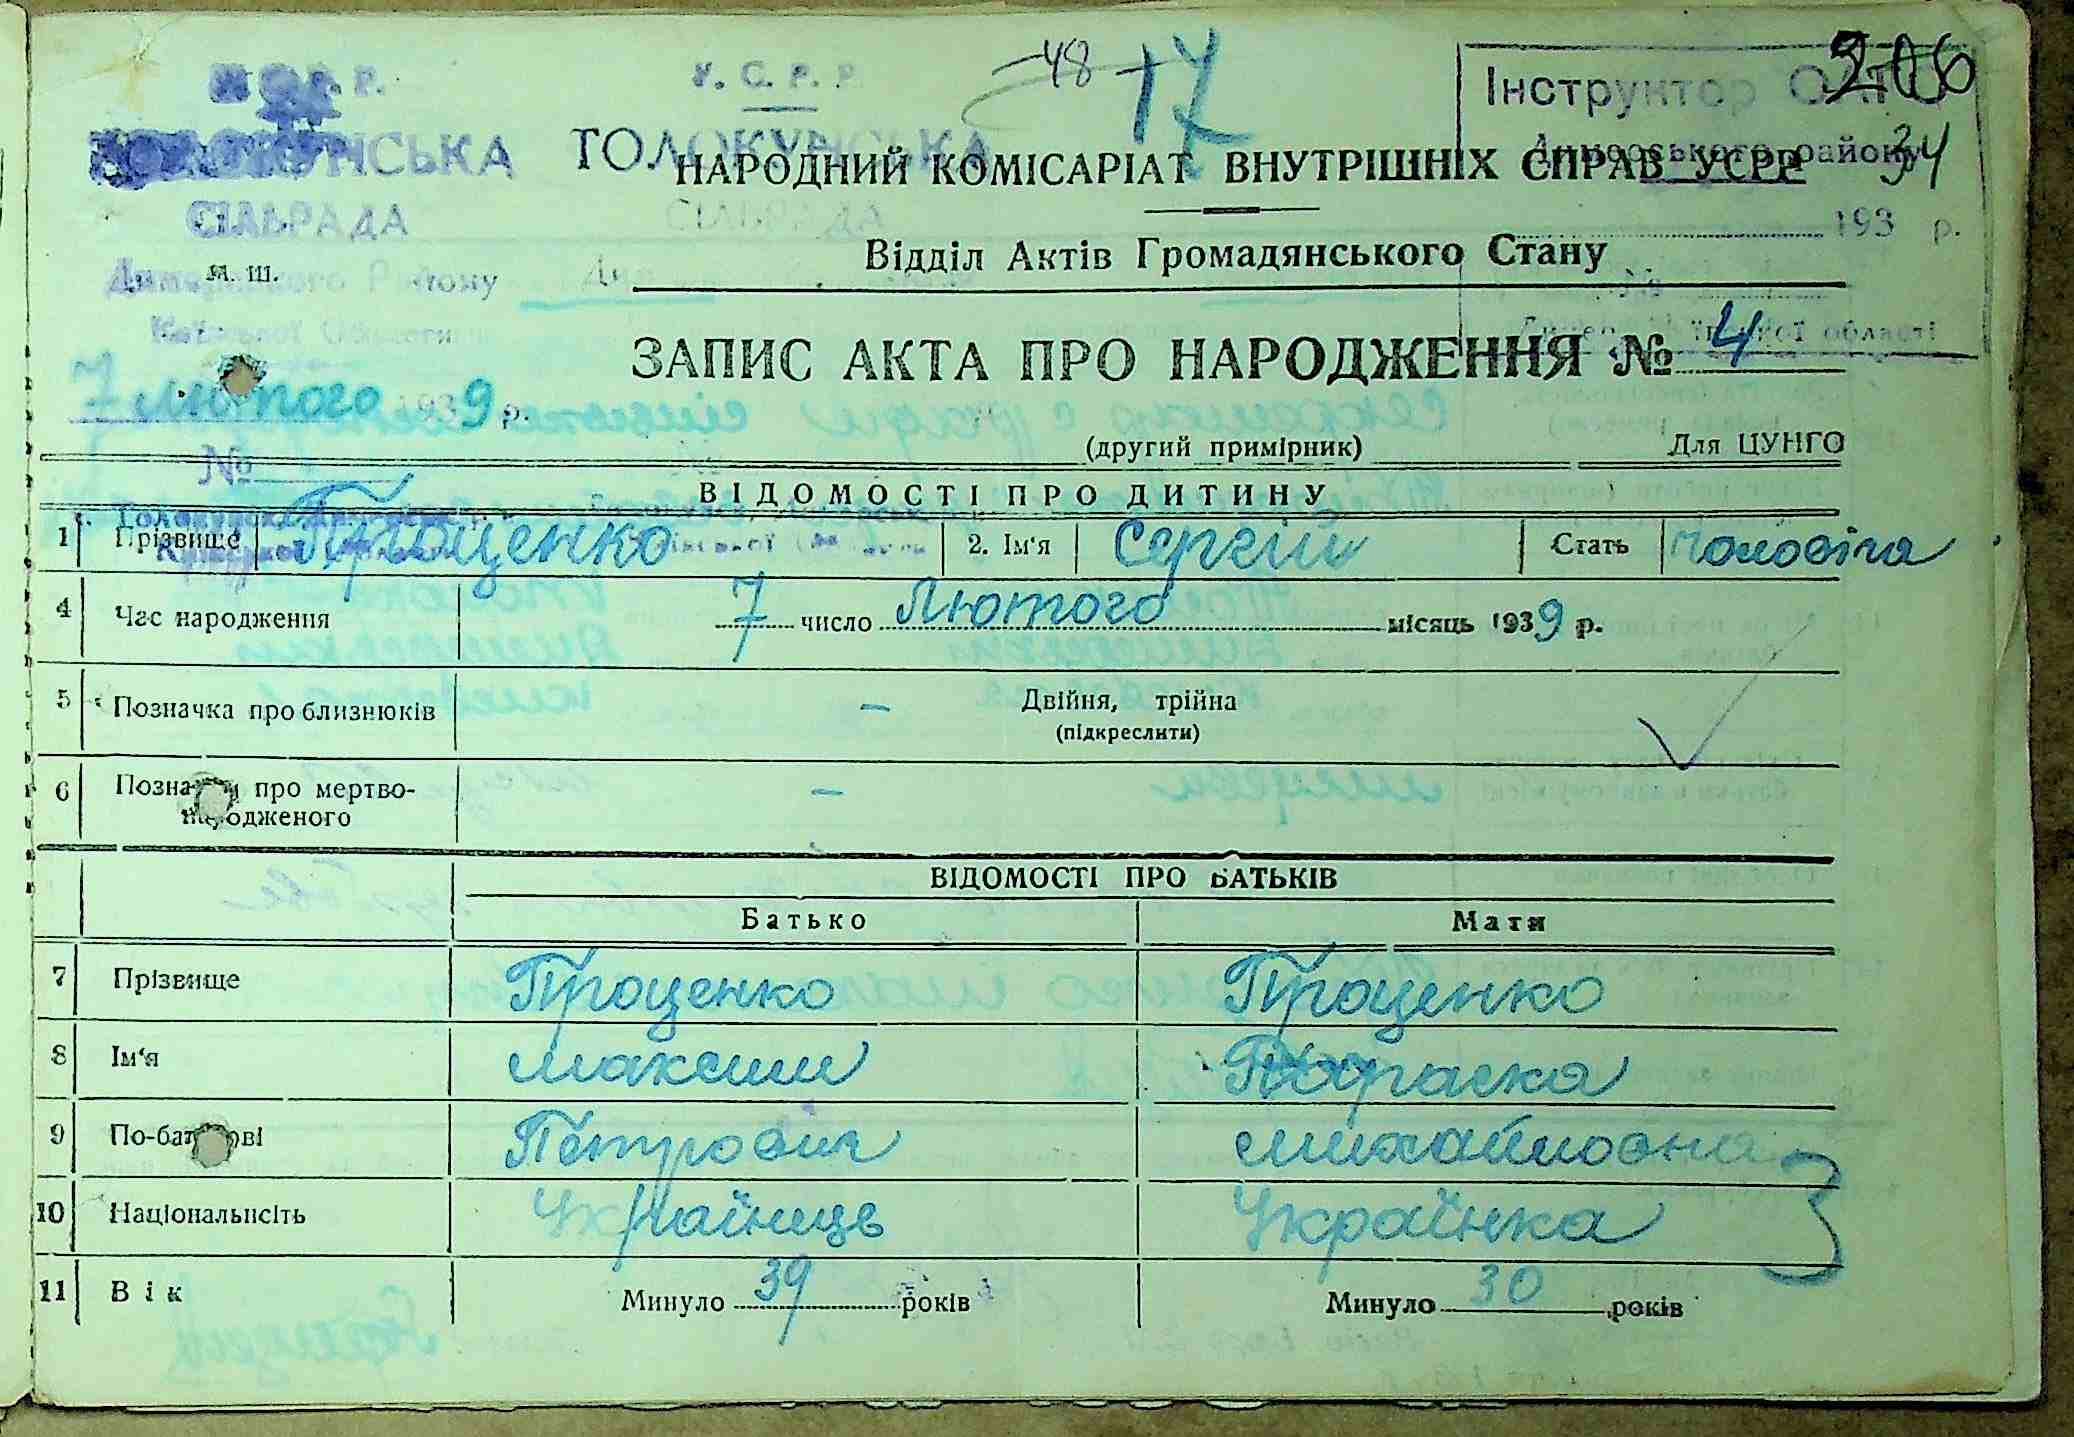 У. С. Р. Р.
-48 17 206
Інструктор
ТОЛОКУНСЬКА
НАРОДНИЙ КОМІСАРІАТ ВНУТРІШНІХ СПРАВ УСРР
району 34
СІЛЬРАДА СІЛЬРАДА
193 р.
Відділ Актів Громадянського Стану
М. Ш.
Району
Київської Області
області
ЗАПИС АКТА ПРО НАРОДЖЕННЯ № 4
7 лютого 1939 р.
(другий примірник) Для ЦУНГО
№
ВІДОМОСТІ ПРО ДИТИНУ
1 Прізвище Проценко 2. Ім'я Сергій Стать Чоловіча
4 Час народження 7 число Лютого місяць 1939 р.
5 Позначка про близнюків – Двійня, трійна
(підкреслити)
6 Позначка про мертво-
народженого –
ВІДОМОСТІ ПРО БАТЬКІВ
Батько Мати
7 Прізвище Проценко Проценко
8 Ім'я Максим Параска
9 По-батькові Петрович Михайловна
10 Національність Українець Українка
11 Вік Минуло 39 років Минуло 30 років